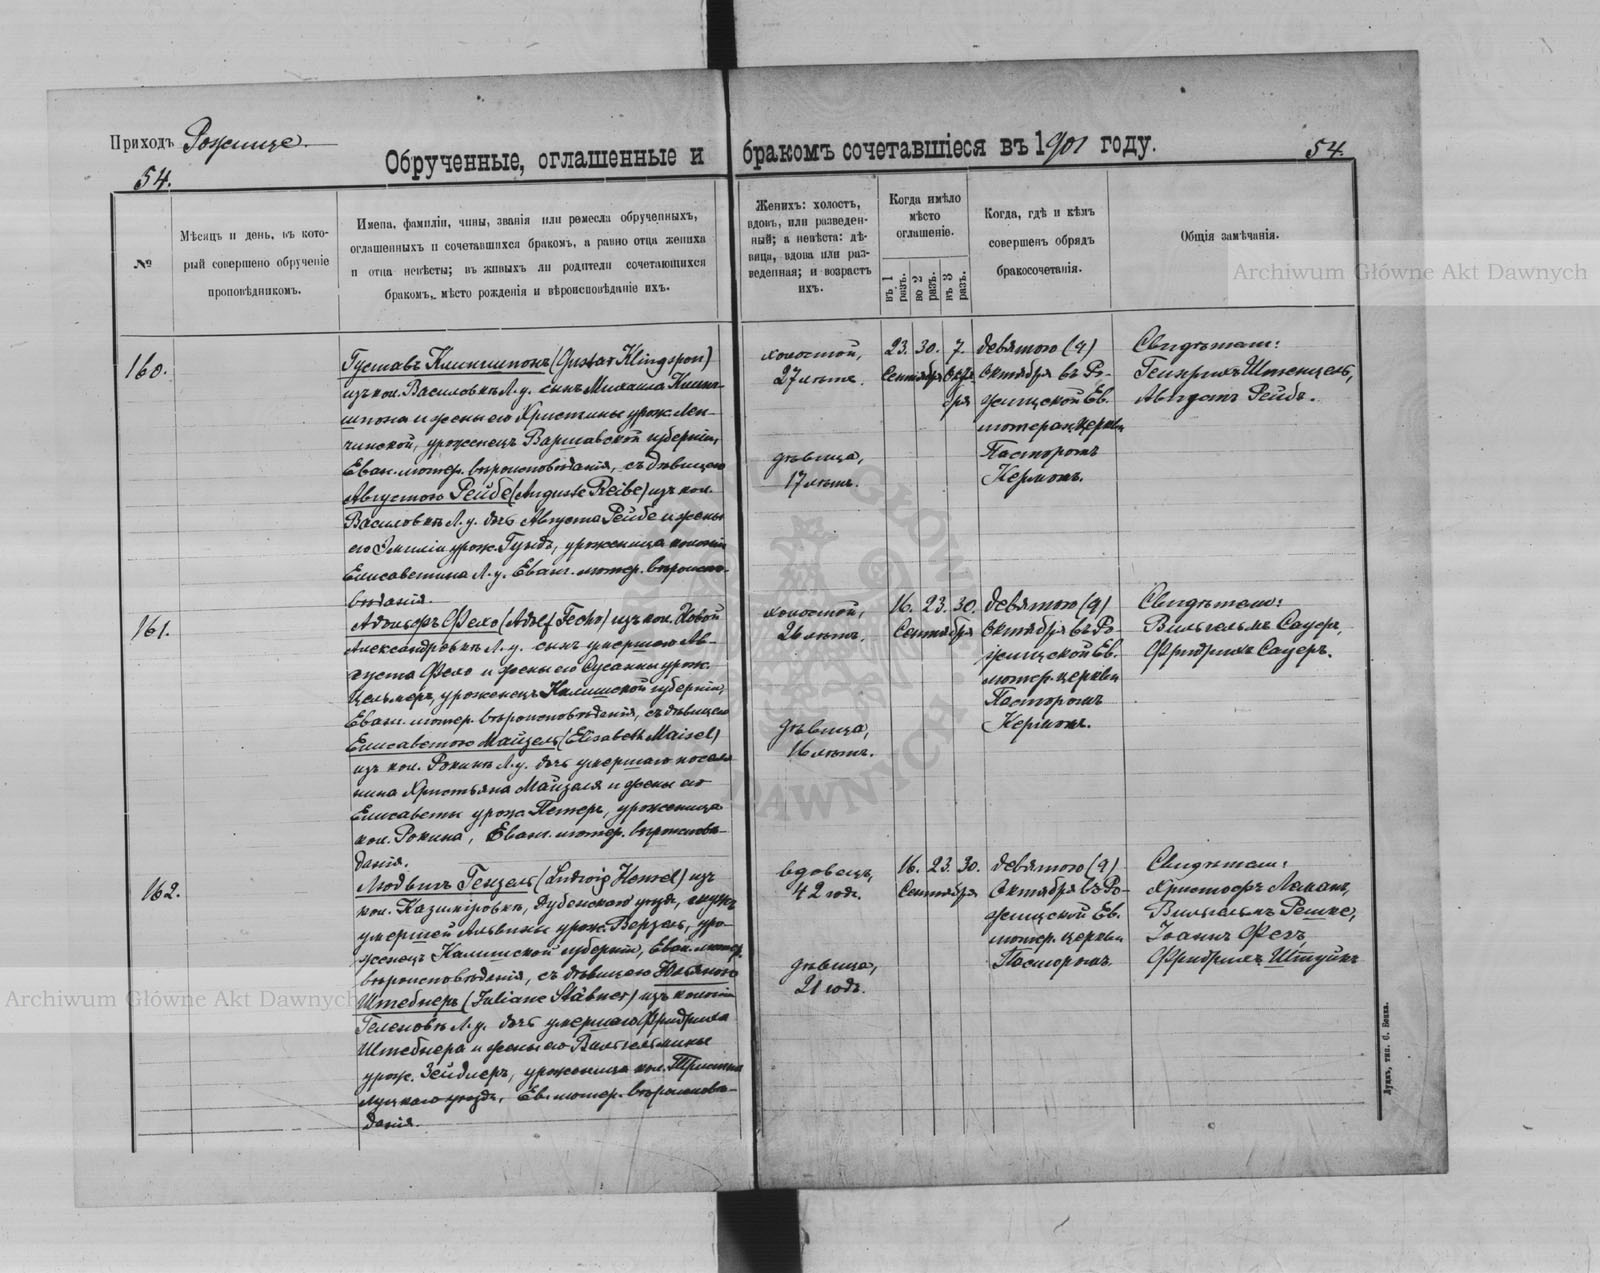 Приходъ Рожище.
54.
Обрученные, оглашенные и бракомъ сочетавшіеся въ 1901 году.
54.
№
Мѣсяцъ и день, въ кото-
рый совершено обрученіе
проповѣдникомъ.
Имена, фамиліи, чины, званія или ремесла обрученныхъ,
оглашенныхъ и сочетавшихся бракомъ, а равно отца жениха
и отца невѣсты; въ живыхъ ли родители сочетающихся
бракомъ, мѣсто рожденія и вѣроисповѣданіе ихъ.
Женихъ: холостъ,
вдовъ, или разведен-
ный; а невѣста: дѣ-
вица, вдова или раз-
веденная; и возрастъ
ихъ.
Когда имѣло
мѣсто
оглашеніе.
въ 1 разъ.
во 2 разъ.
въ 3 разъ.
Когда, гдѣ и кѣмъ
совершенъ обрядъ
бракосочетанія.
Общія замѣчанія.
Archiwum Główne Akt Dawnych
160.
Густавъ Клингшпонъ (Gustav Klingspon)
изъ кол. Василовкѣ Л. у. сынъ Михаила Клинг-
шпона и жены его Христины урож. Лен-
чинской, уроженецъ Варшавской губерніи,
Еван. лютер. вѣроисповѣданія, съ дѣвицею
Августою Рейбе (Auguste Reibe) изъ кол.
Василовкѣ Л. у. дочь Августа Рейбе и жены
его Эмиліи урож. Гундъ, уроженица колоніи
Елисаветина Л. у. Еванг. лютер. вѣроиспо-
вѣданія.
холостой,
27 лѣтъ.
дѣвица,
17 лѣтъ.
23. 30. 7.
Сентября Октя-
бря
девятого (9)
Октября въ Ро-
жищской Ев.
лютеран. церкви
Пасторомъ
Кермомъ.
Свидѣтели:
Генрихъ Штенцель,
Августъ Рейбъ.
161.
Адольфъ Фехо (Adolf Fecho) изъ кол. Новой
Александровкѣ Л. у. сынъ умершаго Ав-
густа Фехо и жены его Сусанны урож.
Цельмеръ, уроженецъ Калишской губерніи,
Еванг. лютер. вѣроисповѣданія, съ дѣвицею
Елисаветою Майзель (Elisabeth Maisel)
изъ кол. Рокинѣ Л. у. дочь умершаго поселя-
нина Христьяна Майзеля и жены его
Елисаветы урож. Петеръ, уроженица
кол. Рокина, Еванг. лютер. вѣроисповѣ-
данія.
холостой,
26 лѣтъ.
дѣвица,
16 лѣтъ.
16. 23. 30.
Сентября
девятого (9)
Октября въ Ро-
жищской Ев.
лютер. церкви
Пасторомъ
Кермомъ.
Свидѣтели:
Вильгельмъ Сауеръ,
Фридрихъ Сауеръ.
162.
Людвигъ Гензель (Ludwig Hensel) изъ
кол. Казимировкѣ, Дубенскаго уѣзда, мужъ
умершей Альвины урож. Верзель, уро-
женецъ Калишской губерніи, Еван. лютер.
вѣроисповѣданія, съ дѣвицею Юліяною
Штебнеръ (Juliane Stäbner) изъ колоніи
Геленовкѣ Л. у. дочь умершаго Фридриха
Штебнера и жены его Вильгельмины
урож. Зейдлеръ, уроженица кол.
Луцкаго уѣзда, Ев. лютер. вѣроисповѣ-
данія.
вдовецъ,
42 года.
дѣвица,
21 года.
16. 23. 30.
Сентября
девятого (9)
Октября въ Ро-
жищской Ев.
лютер. церкви
Пасторомъ.
Свидѣтели:
Христофъ
Вильгельмъ Решке,
Іоанъ Фехъ,
Фридрихъ
Archiwum Główne Akt Dawnych
Луцкъ, тип. С. Бенха.